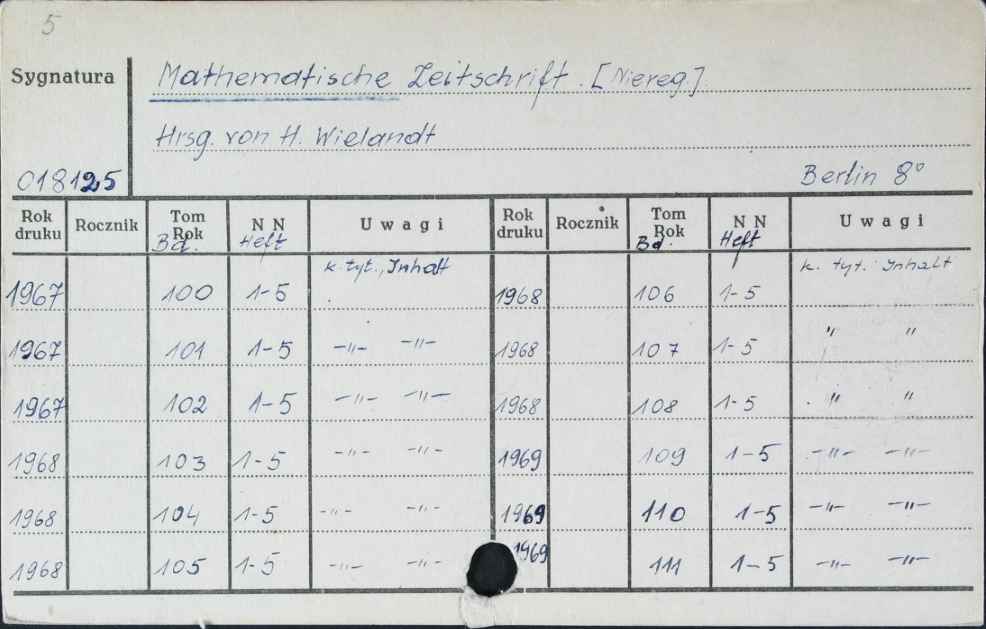 5
Sygnatura Mathematische Zeitschrift. [Niereg.]
Hrsg. von H. Wielandt
018125 Berlin 8°
Rok druku Rocznik Tom Rok Bd. N N Heft U w a g i Rok druku Rocznik Tom Rok Bd. N N Heft U w a g i
k. tyt., Inhalt k. tyt. Inhalt
1967 100 1-5 1968 106 1-5
1967 101 1-5 -"- -"- 1968 107 1-5 " "
1967 102 1-5 -"- -"- 1968 108 1-5 " "
1968 103 1-5 -"- -"- 1969 109 1-5 -"- -"-
1968 104 1-5 -"- -"- 1969 110 1-5 -"- -"-
1968 105 1-5 -"- -"- 1969 111 1-5 -"- -"-